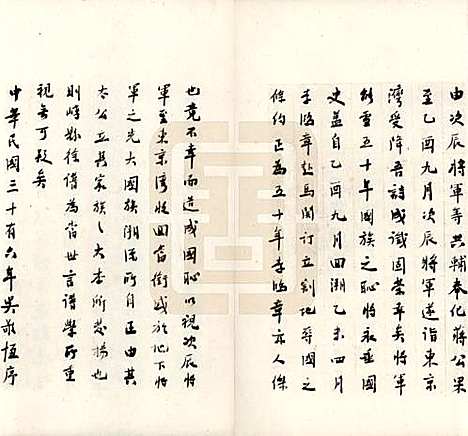 由次辰將軍等共輔奉化蔣公果
至乙酉九月次辰將軍遂詣東京
灣受降吾詩成讖固榮幸矣將軍
創雪五十年國族之恥將永垂國
史蓋自乙酉九月回溯乙未四月
李鴻章赴馬關訂立割地辱國之
條約正為五十年李鴻章亦人傑
也竟不幸而造成國恥以視次辰將
軍至東京灣受回當銜感於地下將
軍之先大國族淵源所自正由其
太公立長家族之大本所啟揚也
則崞縣徐譜為當世言譜學所重
視無可疑矣
中華民國三十有六年吳敬恆序